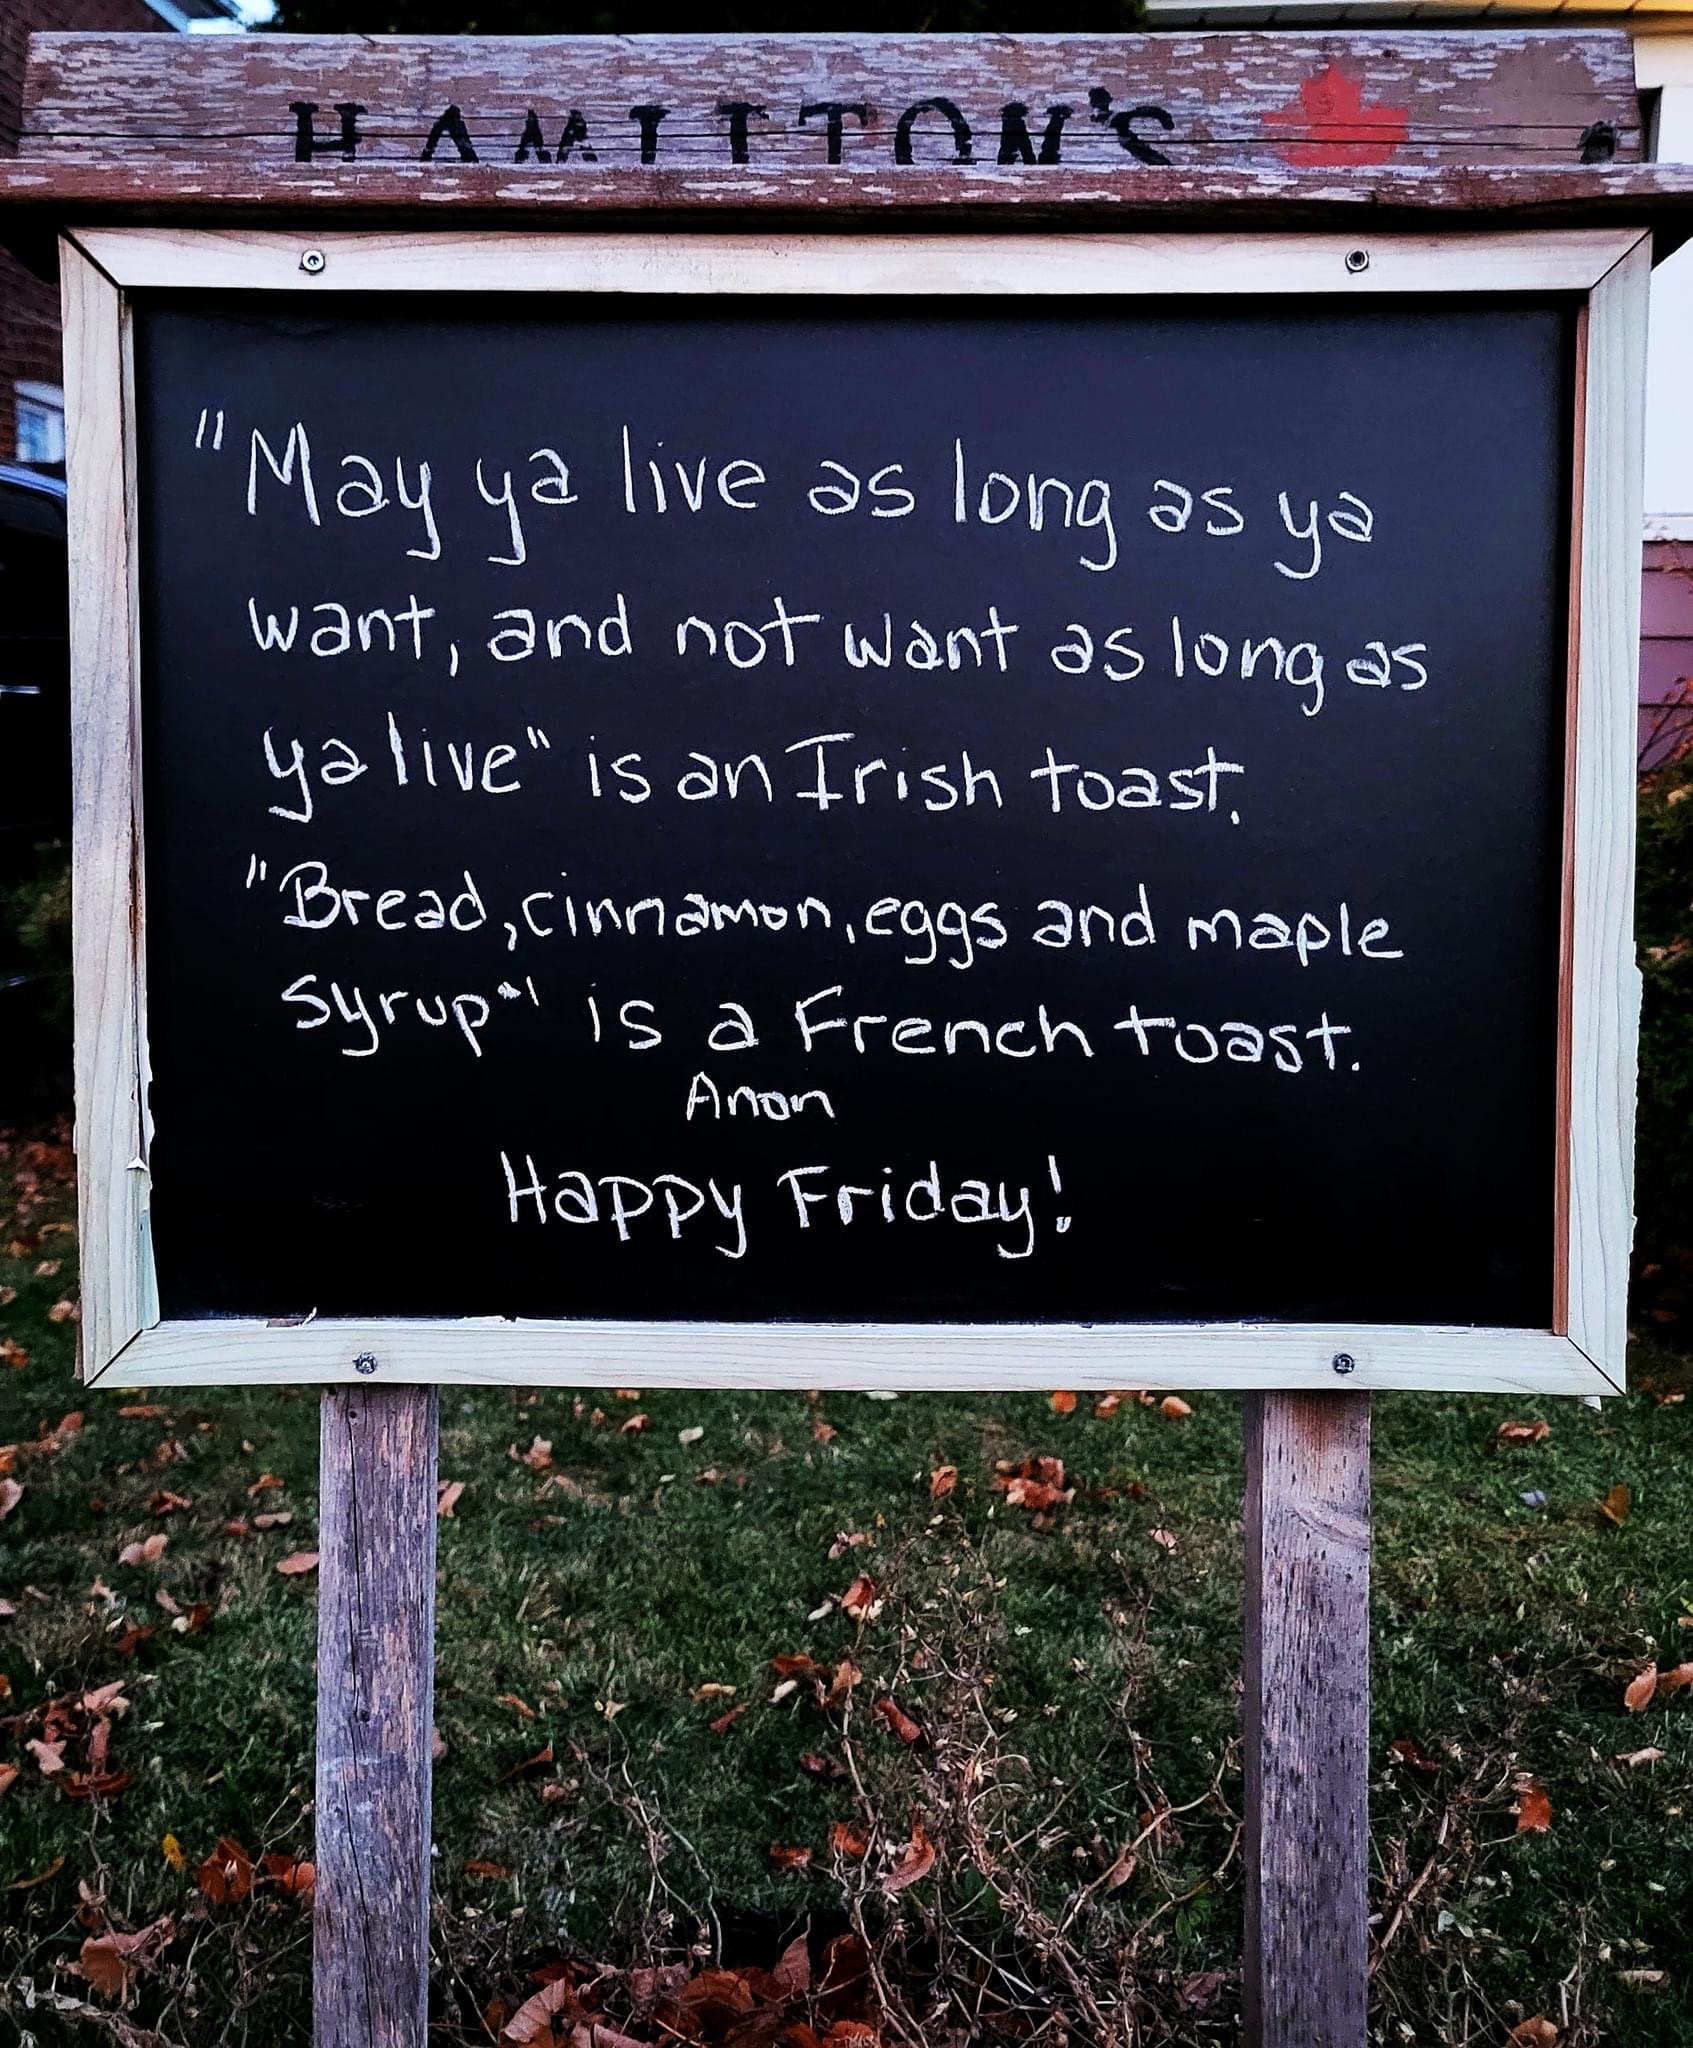 HAMILTON'S
"May ya live as long as ya
want, and not want as long as
ya live" is an Irish toast.
"Bread, cinnamon, eggs and maple
syrup" is a French toast.
Anon
Happy Friday!